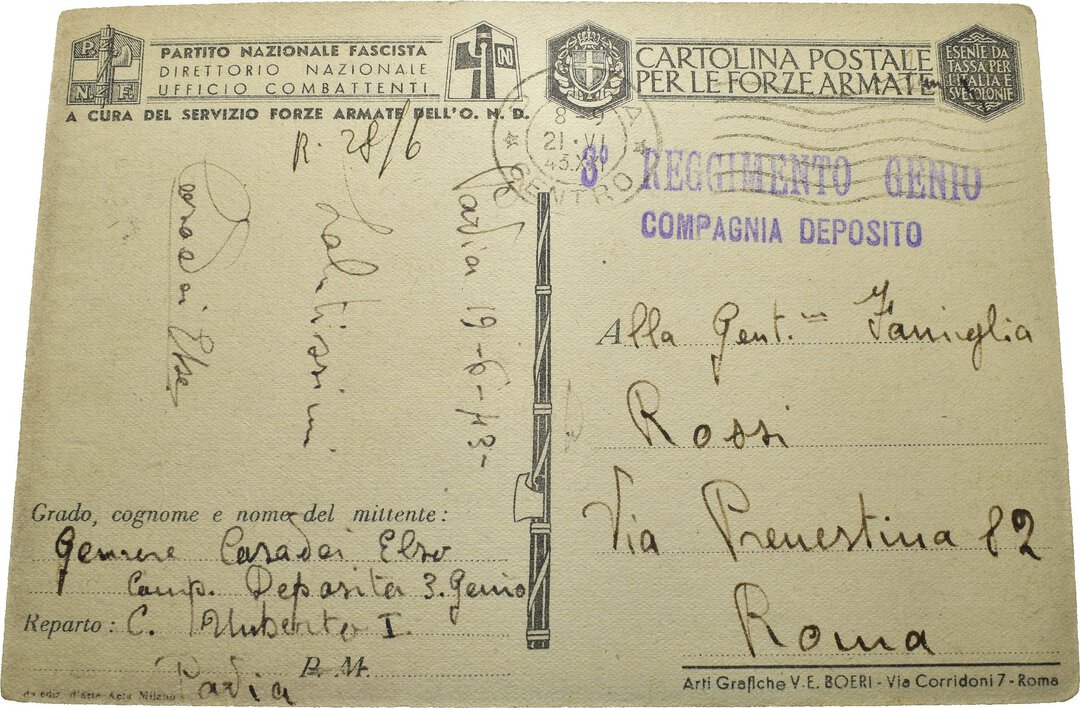 P. N. F.
PARTITO NAZIONALE FASCISTA
DIRETTORIO NAZIONALE
UFFICIO COMBATTENTI
A CURA DEL SERVIZIO FORZE ARMATE DELL'O. N. D.
CARTOLINA POSTALE
PER LE FORZE ARMATE
ESENTE DA
TASSA PER
L'ITALIA E
SVE COLONIE
R. 28/6
8-9
21·VI
43.XXI
CENTRO
3° REGGIMENTO GENIO
COMPAGNIA DEPOSITO
Pavia 19-6-43-
Salutissimi
Casadei Elso
Alla Gent.ma Famiglia
Rossi
Via Prenestina 82
Roma
Grado, cognome e nome del mittente:
Geniere Casadei Elso
Comp. Deposito 3. Genio
Reparto: C. Umberto I.
Pavia P. M.
Arti Grafiche V. E. BOERI - Via Corridoni 7 - Roma